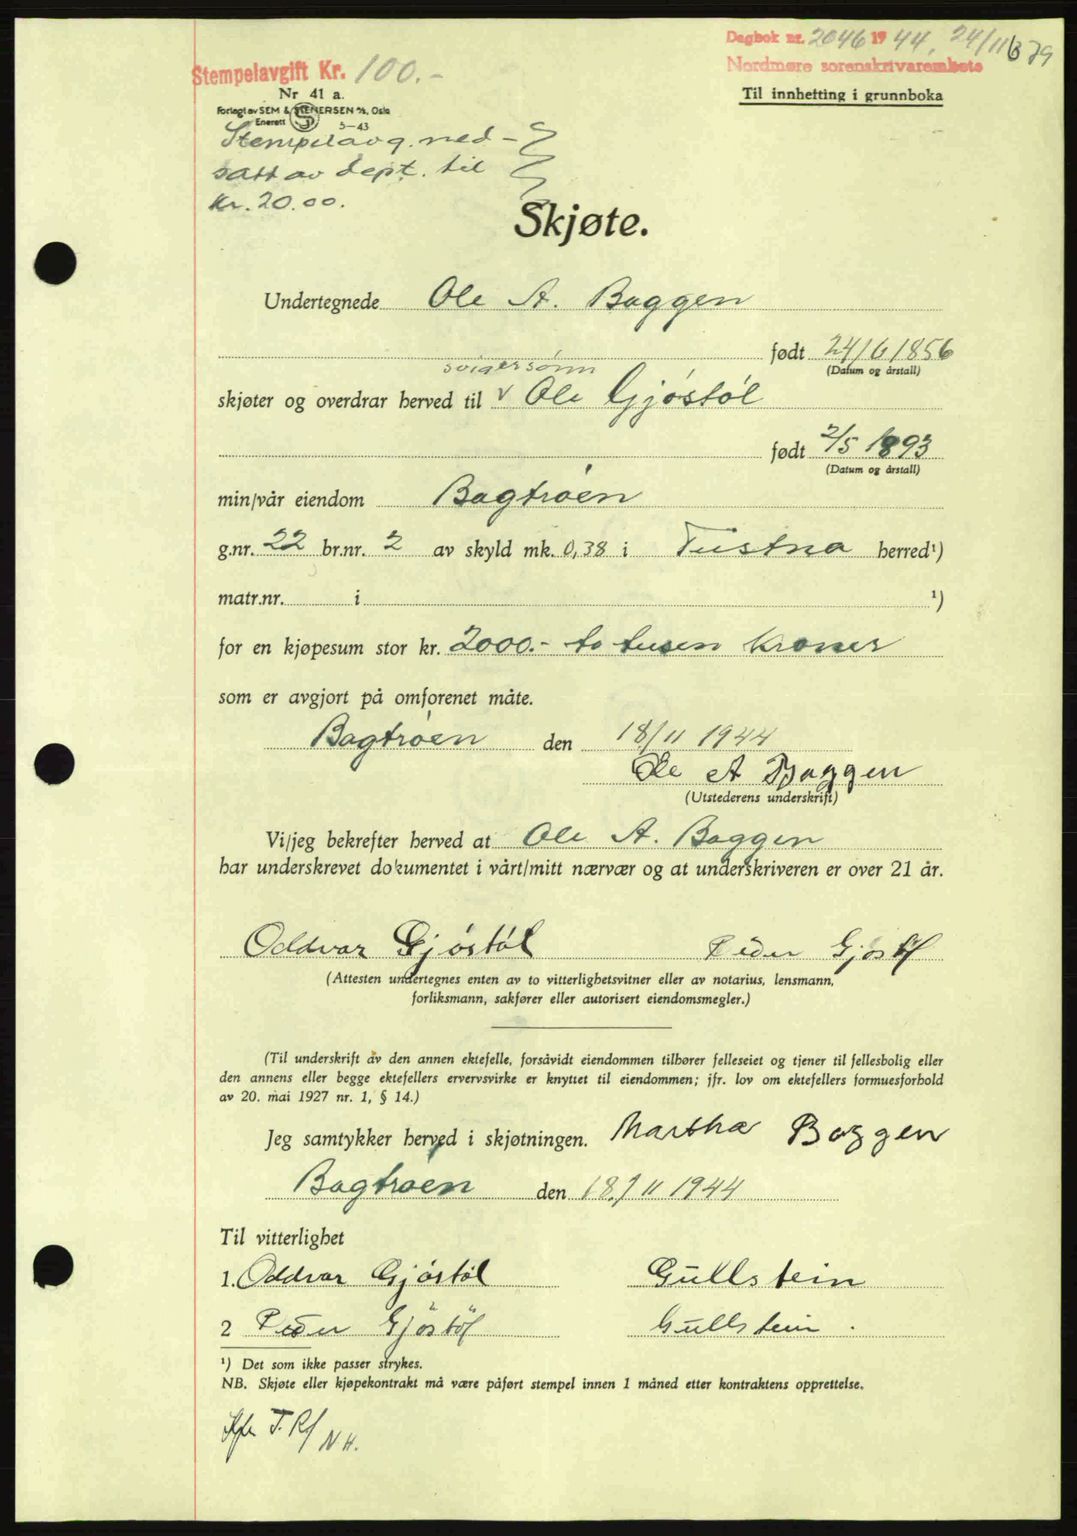 Dagbok nr. 2046 1944, 24/11 679
Stempelavgift Kr. 100.-
Nordmøre sorenskrivarembete
Nr 41 a.
Til innhetting i grunnboka
Forlagt av SEM & STENERSEN A/S, Oslo
Enerett S 5-43
Stempelavg. ned-
satt av dept. til
Kr. 20.00.
Skjøte.
Undertegnede Ole A. Baggen
født 24/6 1856
(Datum og årstall)
svigersønn
skjøter og overdrar herved til v Ole Gjøstøl
født 2/5 1893
(Datum og årstall)
min/vår eiendom Bagtrøen
g.nr. 22 br.nr. 2 av skyld mk. 0,38 i Tustna herred¹)
matr.nr. i ¹)
for en kjøpesum stor kr. 2000.- to tusen kroner
som er avgjort på omforenet måte.
Bagtrøen den 18/11 1944
Ole A Baggen
(Utstederens underskrift)
Vi/jeg bekrefter herved at Ole A. Baggen
har underskrevet dokumentet i vårt/mitt nærvær og at underskriveren er over 21 år.
Oddvar Gjøstøl Peder Gjøstøl
(Attesten undertegnes enten av to vitterlighetsvitner eller av notarius, lensmann,
forliksmann, sakfører eller autorisert eiendomsmegler.)
(Til underskrift av den annen ektefelle, forsåvidt eiendommen tilhører felleseiet og tjener til fellesbolig eller
den annens eller begge ektefellers ervervsvirke er knyttet til eiendommen; jfr. lov om ektefellers formuesforhold
av 20. mai 1927 nr. 1, § 14.)
Jeg samtykker herved i skjøtningen. Martha Baggen
Bagtrøen den 18/11 1944
Til vitterlighet
1. Oddvar Gjøstøl Gullstein
2 Peder Gjöstöl Gullstein.
¹) Det som ikke passer strykes.
NB. Skjøte eller kjøpekontrakt må være påført stempel innen 1 måned etter kontraktens opprettelse.
N H.